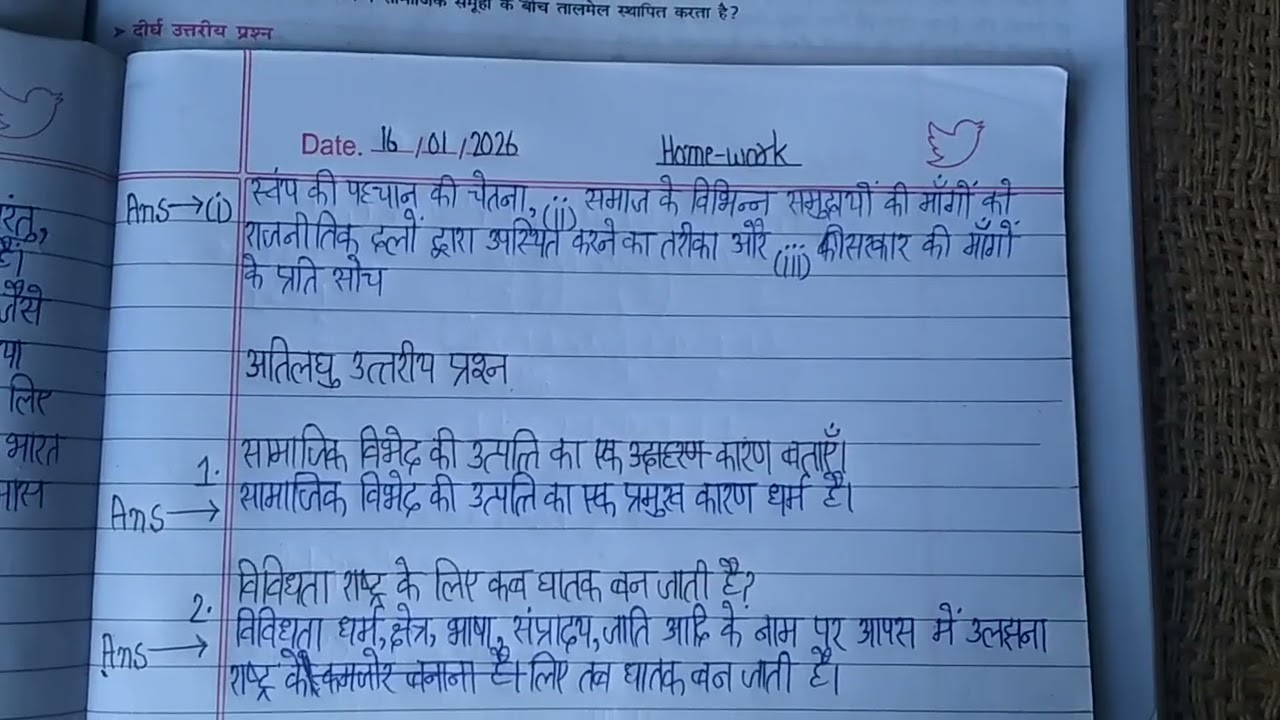 सामाजिक समूहों के बीच तालमेल स्थापित करता है?
➤ दीर्घ उत्तरीय प्रश्न
Date. 16/01/2026 Home-work
Ans→(i) स्वंप की पहचान की चेतना, (ii) समाज के विभिन्न समुदायों की माँगों को
राजनीतिक दलों द्वारा उपस्थित करने का तरीका और (iii) की सरकार की माँगों
के प्रति सोच
अतिलघु उत्तरीय प्रश्न
1. सामाजिक विभेद की उत्पत्ति का एक उदाहरण कारण बताएँ।
Ans → सामाजिक विभेद की उत्पत्ति का एक प्रमुख कारण धर्म है।
2. विविधता राष्ट्र के लिए कब घातक बन जाती है?
Ans → विविधता धर्म, क्षेत्र, भाषा, संप्रादय, जाति आदि के नाम पर आपस में उलझना
राष्ट्र के कमजोर बनाना है। लिए तब घातक बन जाती है।
रंतु,
हैं।
जैसे
या
लिए
भारत